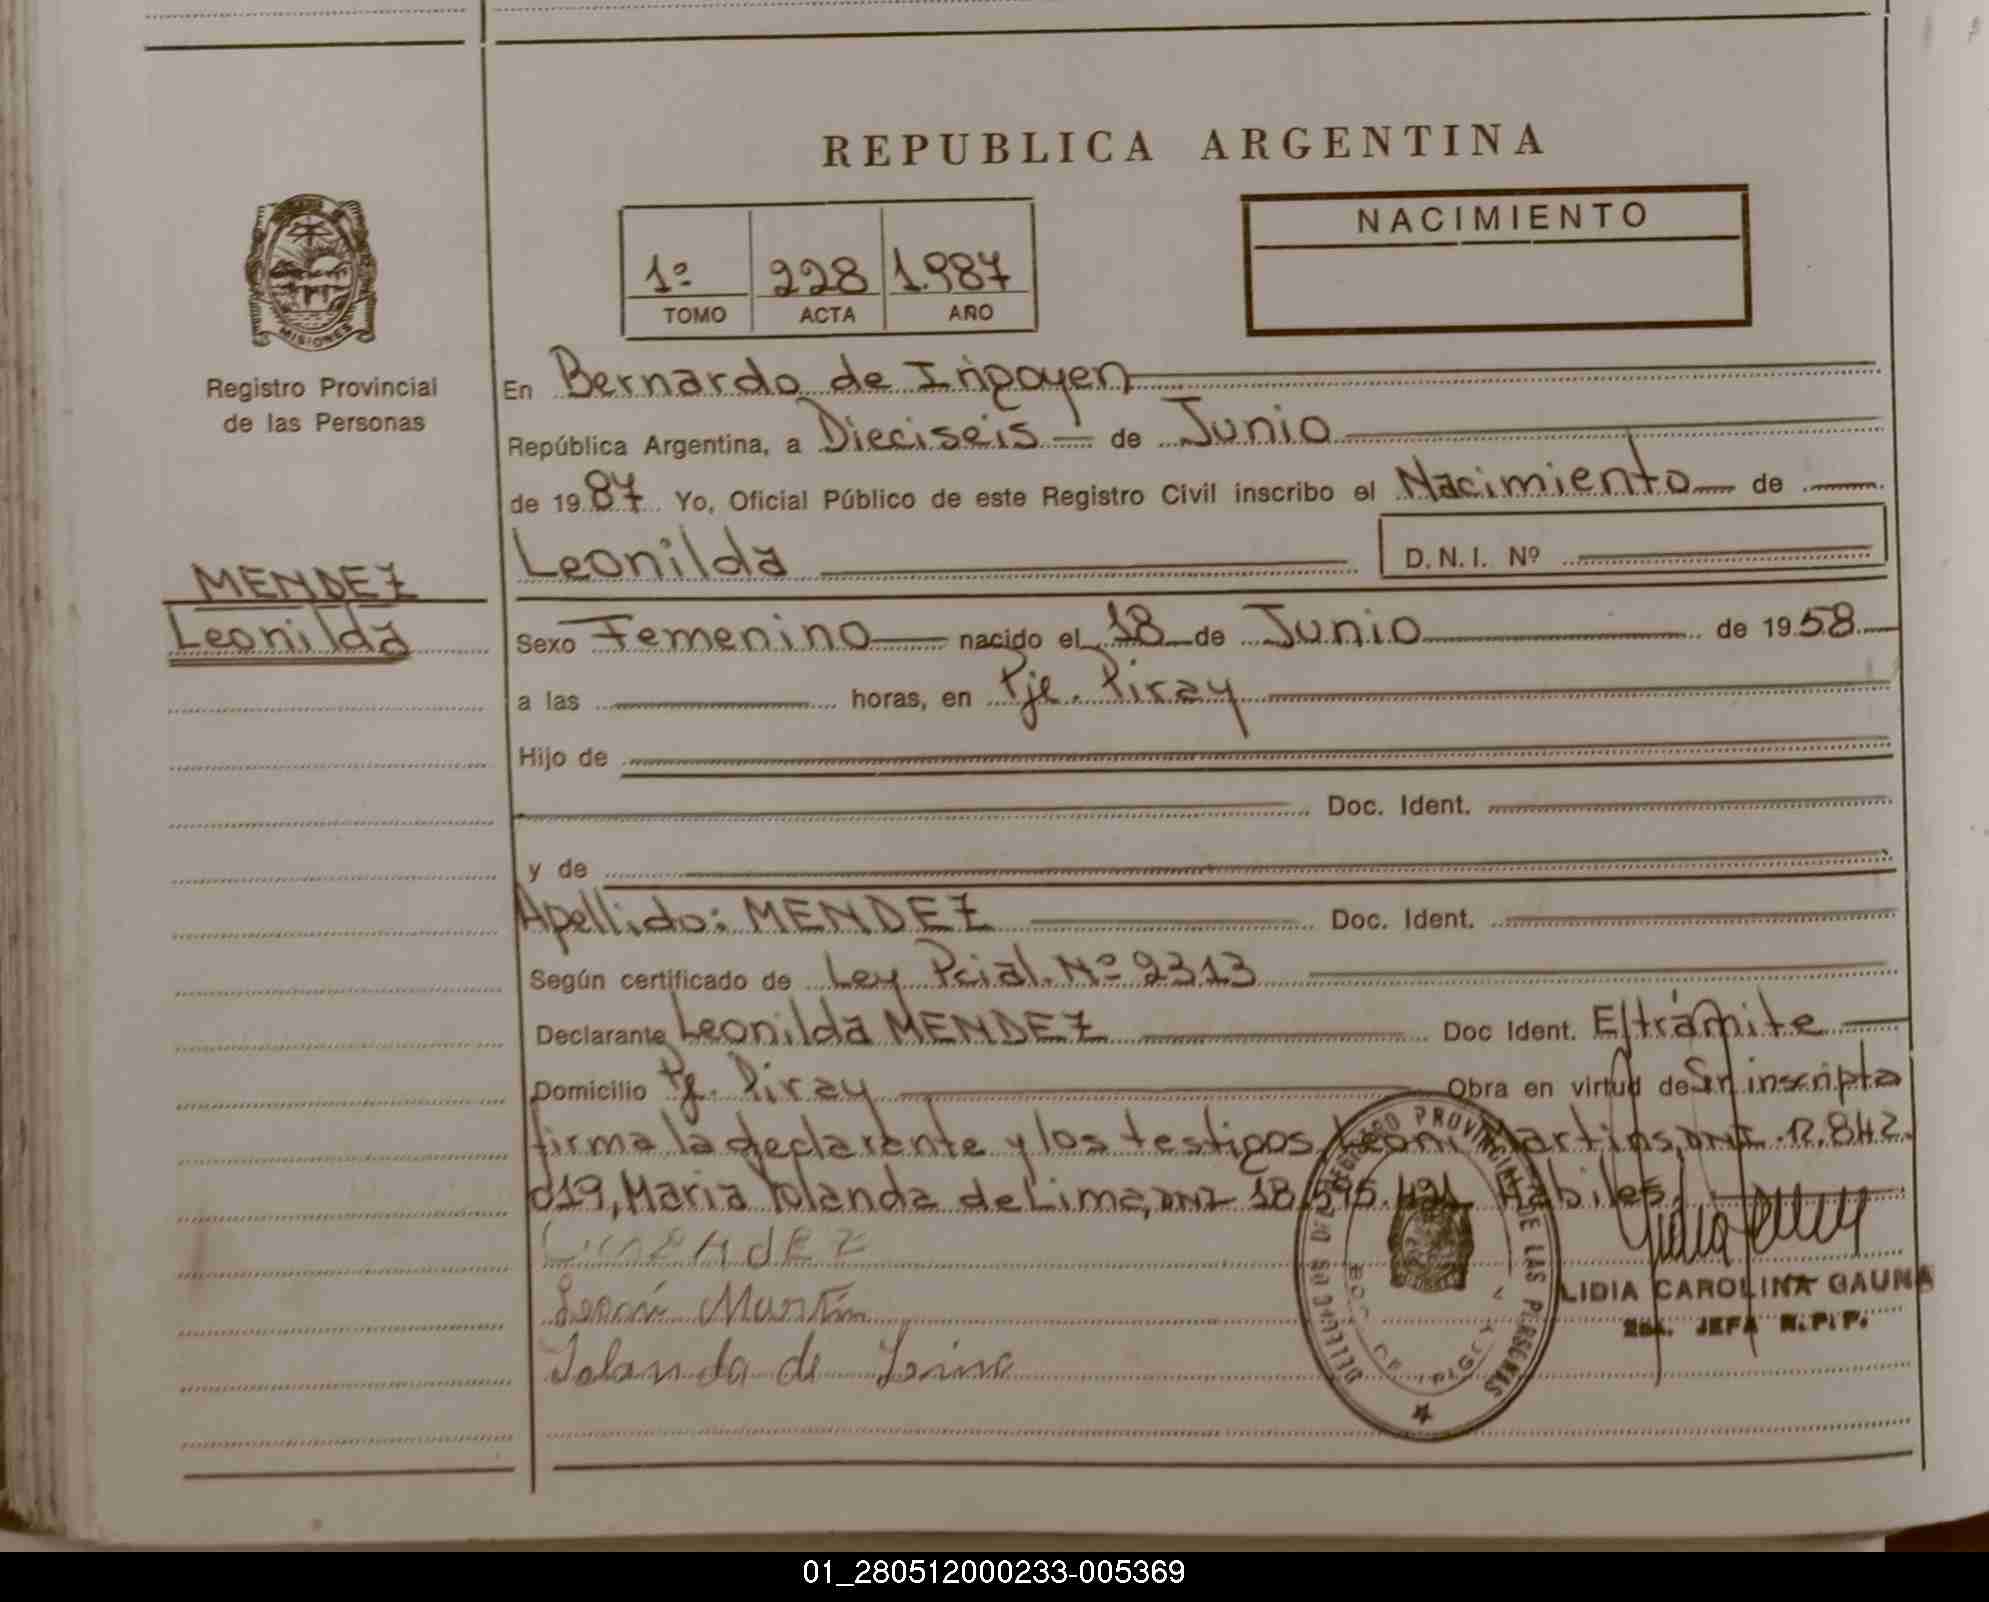 REPUBLICA ARGENTINA
NACIMIENTO
1º 228 1.987
TOMO ACTA AÑO
MISIONES
Registro Provincial
de las Personas
MENDEZ
Leonilda
En Bernardo de Irigoyen
República Argentina, a Dieciseis de Junio
de 1987 Yo, Oficial Público de este Registro Civil inscribo el Nacimiento de
Leonilda D.N.I. Nº
Sexo Femenino nacido el 18 de Junio de 1958
a las horas, en Pje. Piray
Hijo de
Doc. Ident.
y de
Apellido: MENDEZ Doc. Ident.
Según certificado de Ley Pcial. Nº 2313
Declarante Leonilda MENDEZ Doc Ident. E/trámite
Domicilio Pje. Piray Obra en virtud de Ser inscripta
firma la declarante y los testigos, Leoni Martins, DNI. 12.842.
019, Maria Iolanda de Lima, DNI 18.595.421 Habiles.
L MENDEZ
Leoni Martin
Iolanda de Lima
DELEGADOS DEL REGISTRO PROVINCIAL DE LAS PERSONAS
LIDIA CAROLINA GAUNA
JEFA R.P.P.
01_280512000233-005369